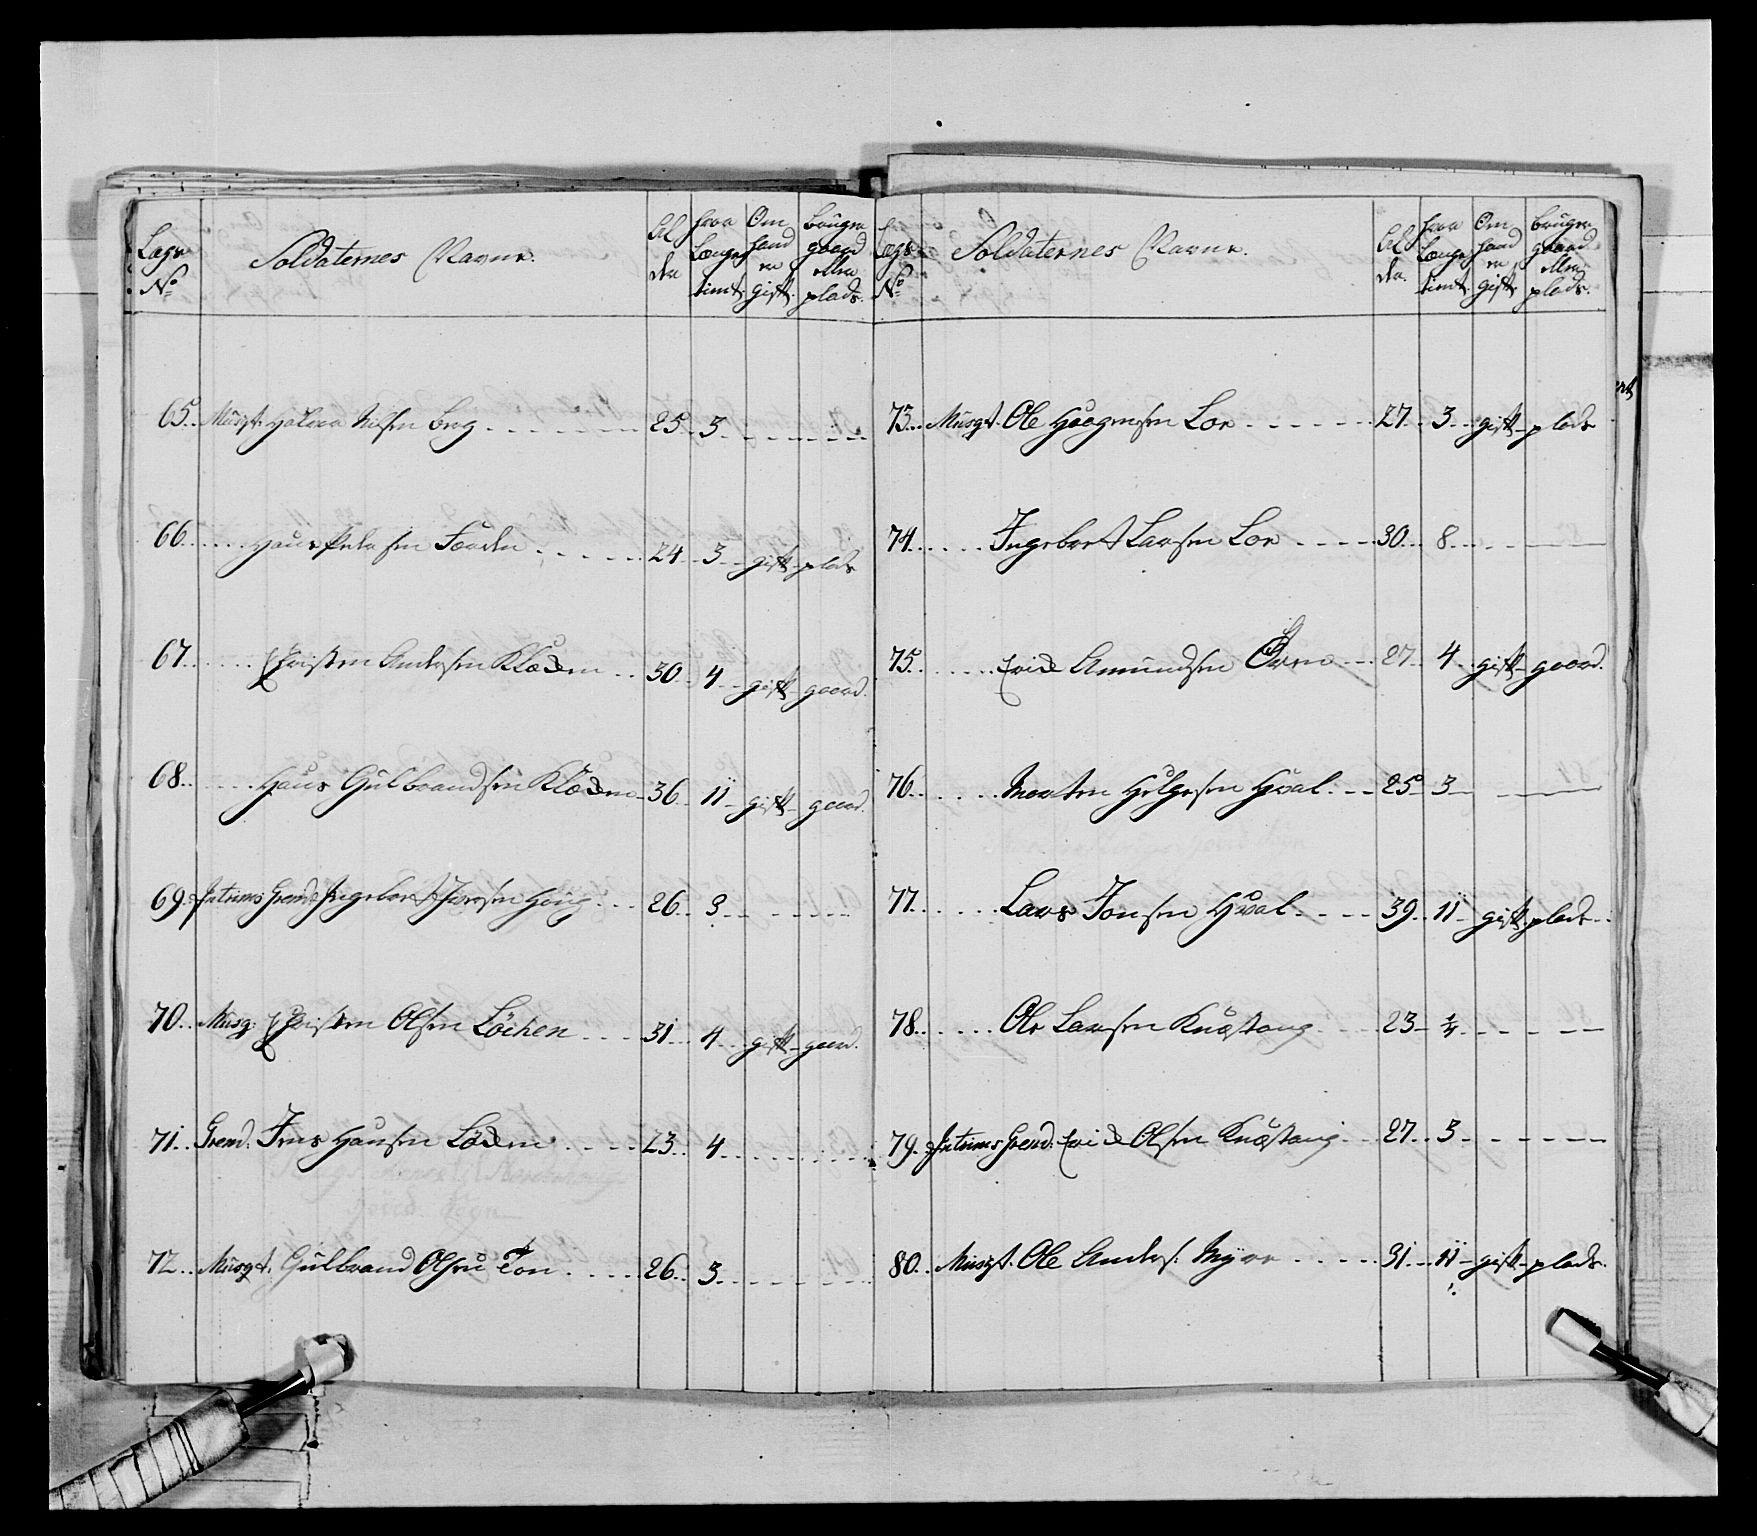 Lægs No | Soldaternes Navne. | Al der | hvor Længe tient. | Om hand er gift. | bruger gaard eller plads.
65. Musqt. Halvor Nilsen Berg 25. 3.
66. Hans Peder sen 24. 3. gift plads
67. Christen Andersen Kladem 30. 4. gift gaard.
68. Hans Gulbrandsen Kladem 36. 11. gift gaard.
69. Interims Grend. Ingebret Iversen Houg 26. 3.
70. Musq: Christen Olsen Löchen 31. 4. gift gaard.
71. Grend. Jens Hansen 23. 4.
72. Musqt. Gulbrand Olsen Ton 26. 3.
Lægs No | Soldaternes Navne. | Al der. | hvor Længe tient. | Om hand er gift. | bruger gaard eller plads.
73. Musqt. Ole Haagensen Loe 27. 3. gift plads
74. Ingebret Larsen Loe 30. 8.
75. Erich Amundsen 27. 4. gift gaard.
76. Morten Helgesen Hval 25. 3.
77. Lars Jonsen Hval 39. 11. gift plads
78. Ole Larsen Knæstang 23.
79. Interims Grend. Erich Olsen Knæstang 27. 3.
80. Musqt. Ole Anders. Myre 31. 11. gift plads.